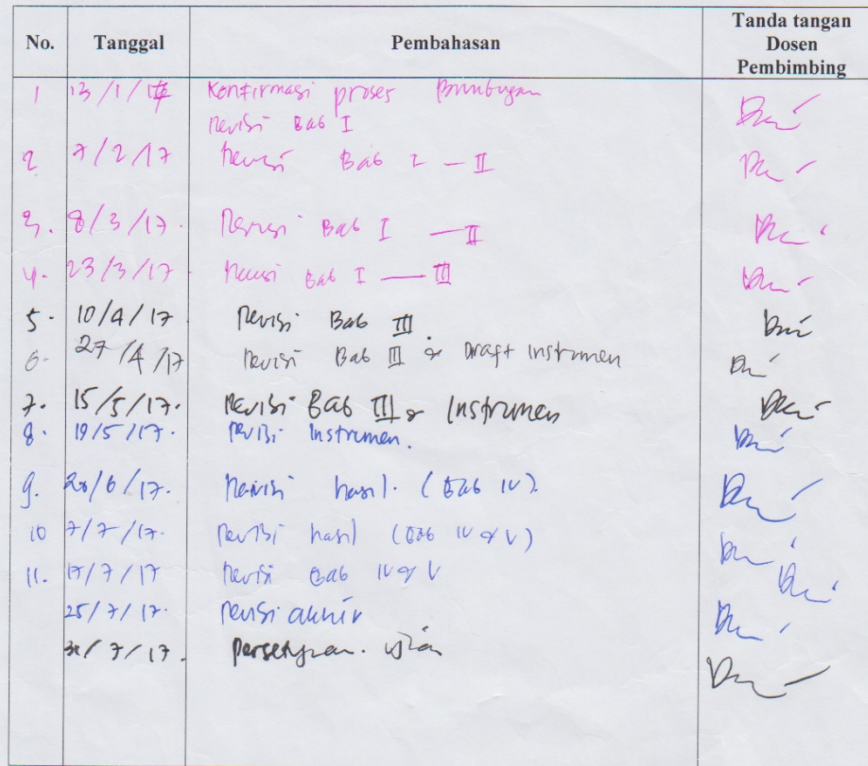 No. Tanggal Pembahasan Tanda tangan Dosen Pembimbing
1 13/1/17 Konfirmasi proses Bimbingan
Revisi Bab I
2 7/2/17 Revisi Bab I - II
3. 8/3/17. Revisi Bab I - II
4. 23/3/17. Revisi Bab I - III
5. 10/4/17 Revisi Bab III.
6. 27/4/17 Revisi Bab III & Draft instrumen
7. 15/5/17. Revisi Bab III & Instrumen
8. 19/5/17. Revisi Instrumen.
9. 20/6/17. Revisi hasil. (Bab IV).
10 7/7/17. Revisi hasil (Bab IV & V)
11. 17/7/17 Revisi Bab IV & V
25/7/17. Revisi akhir
/7/17. Persetujuan. ujian